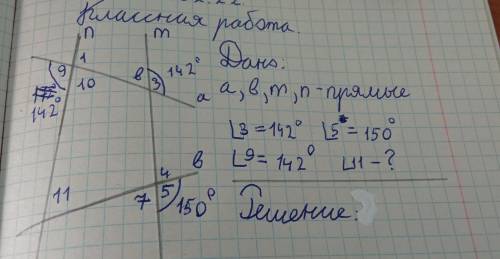 Классная работа.
n
m
Дано:
1
9
10
142°
в
3
142°
а
а, в, m, n - прямые
∠3 = 142° ∠5 = 150°
∠9 = 142° ∠11 - ?
в
4
5
7
150°
11
Решение: